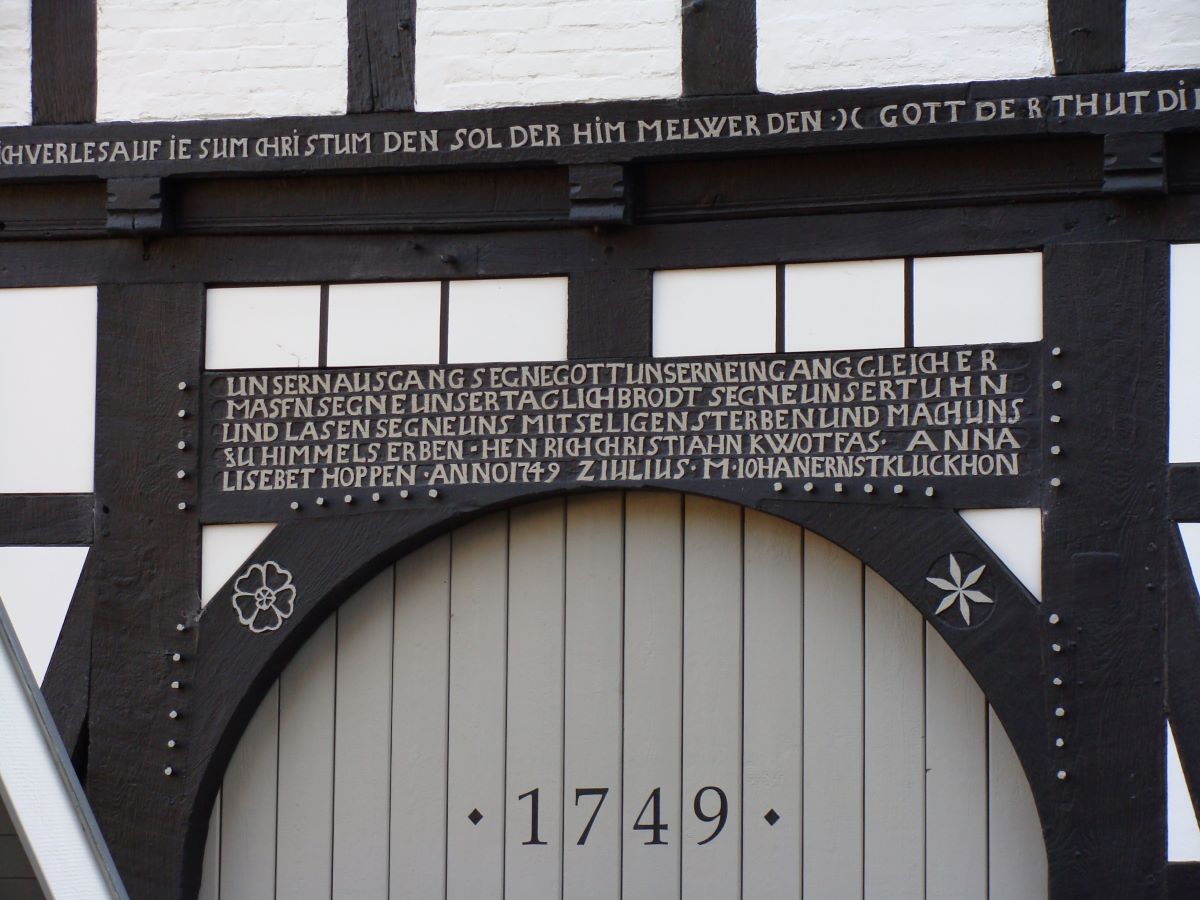 ICHVERLES AUF IESUM CHRISTUM DEN SOL DER HIM MEL WERDEN · GOTT DER THUT DIE
UNSERN AUSGANG SEGNE GOTT UNSERN EINGANG GLEICHER
MASEN SEGNE UNSER TAGLICH BRODT SEGNE UNSER TUHN
UND LASEN SEGNE UNS MIT SELIGEN STERBEN UND MACH UNS
ZU HIMMELS ERBEN · HENRICH CHRISTIAHN KWOTFAS · ANNA
LISEBET HOPPEN · ANNO 1749 Z IULIUS · M · IOHAN ERNST KLUCKHON
· 1749 ·